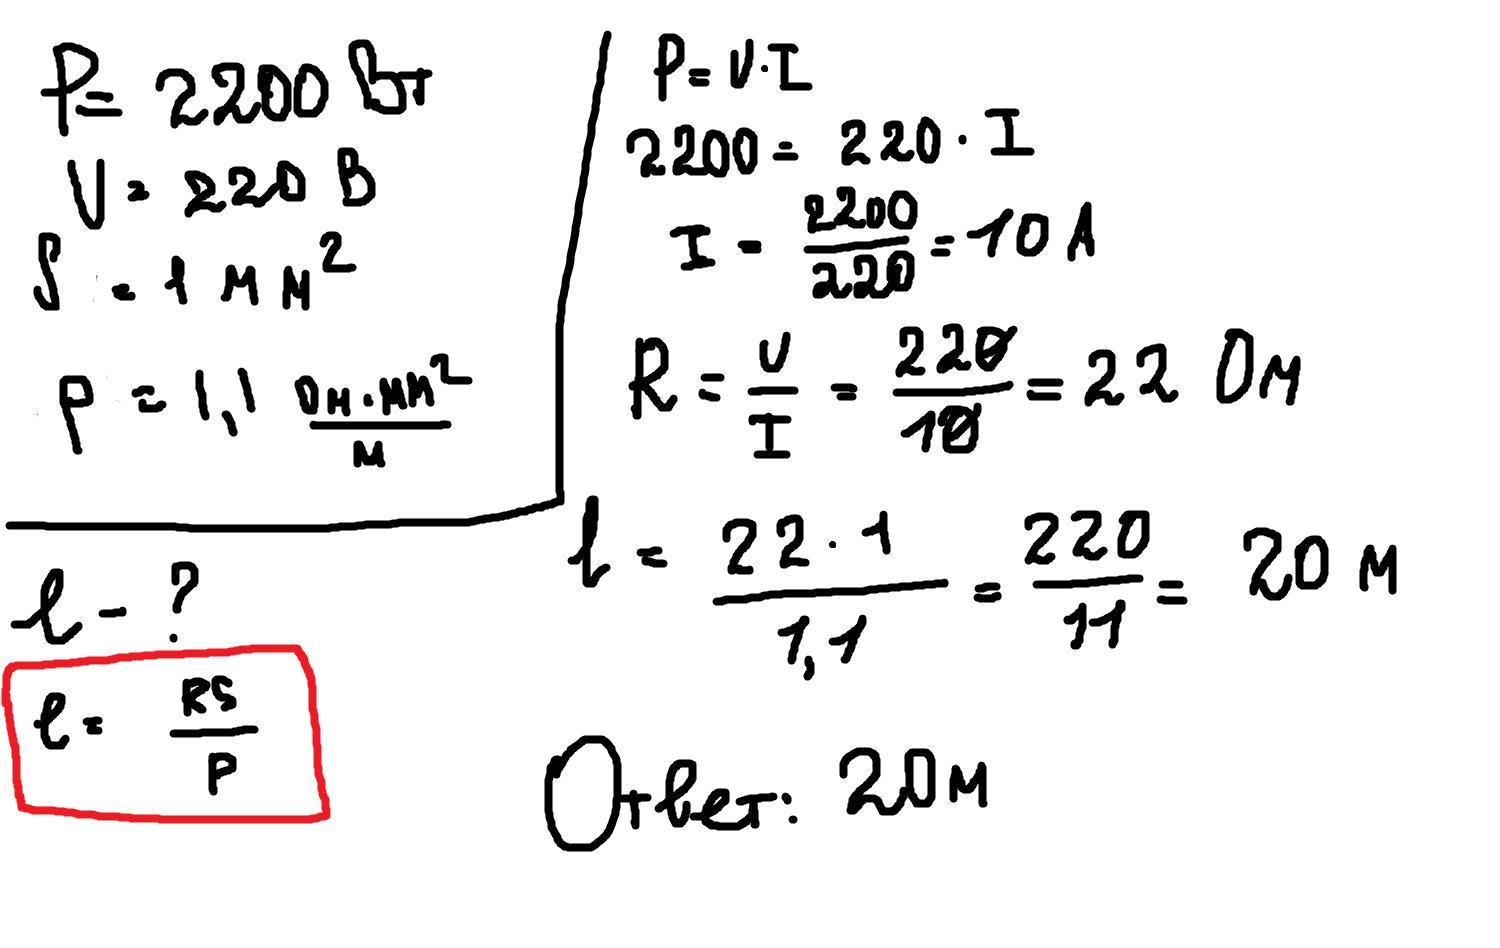 P = 2200 Вт
U = 220 В
S = 1 мм²
ρ = 1,1 Ом·мм²/м
l - ?
l = RS/ρ
P = U·I
2200 = 220 · I
I = 2200/220 = 10 А
R = U/I = 220/10 = 22 Ом
l = 22 · 1/1,1 = 220/11 = 20 м
Ответ: 20 м